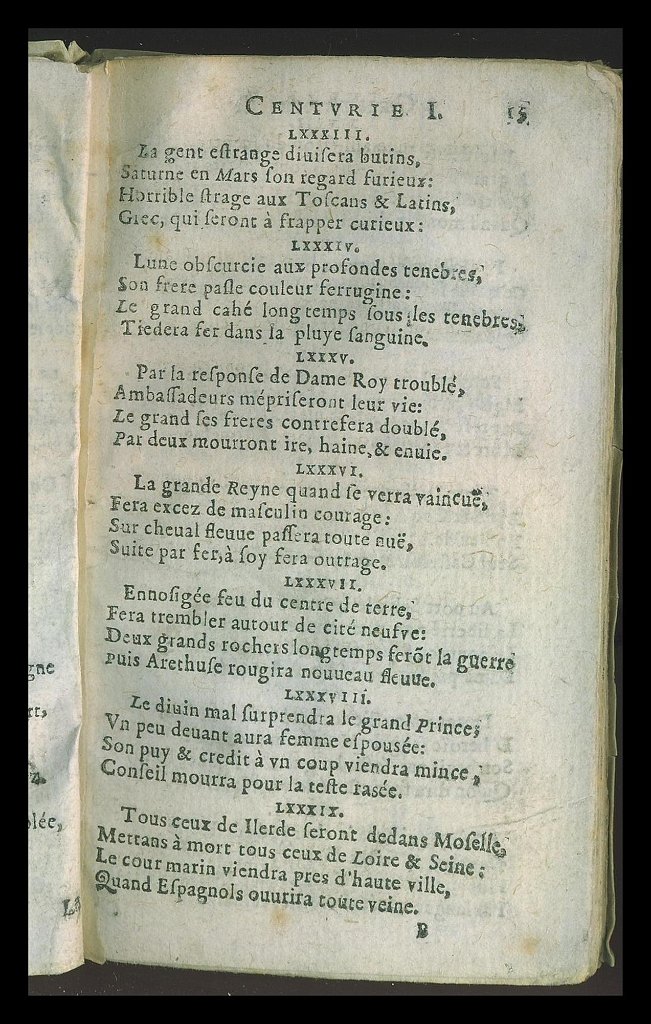 CENTVRIE I. 15
LXXXIII.
La gent eſtrange diuiſera butins,
Saturne en Mars ſon regard furieux:
Horrible ſtrage aux Toſcans & Latins,
Grec, qui ſeront à frapper curieux:
LXXXIV.
Lune obſcurcie aux profondes tenebres,
Son frere paſle couleur ferrugine:
Le grand cahé long temps ſous les tenebres,
Tiedera fer dans la pluye ſanguine.
LXXXV.
Par la reſponſe de Dame Roy troublé,
Ambaſſadeurs mépriſeront leur vie:
Le grand ſes freres contrefera doublé,
Par deux mourront ire, haine, & enuie.
LXXXVI.
La grande Reyne quand ſe verra vaincuë,
Fera excez de maſculin courage:
Sur cheual fleuue paſſera toute nuë,
Suite par fer, à ſoy fera outrage.
LXXXVII.
Ennoſigée feu du centre de terre,
Fera trembler autour de cité neufve:
Deux grands rochers longtemps ferõt la guerre
puis Arethuſe rougira nouueau fleuue.
LXXXVIII.
Le diuin mal ſurprendra le grand Prince,
Vn peu deuant aura femme eſpousée:
Son puy & credit à vn coup viendra mince,
Conſeil mourra pour la teſte rasée.
LXXXIX.
Tous ceux de Ilerde ſeront dedans Moſelle,
Mettans à mort tous ceux de Loire & Seine:
Le cour marin viendra pres d'haute ville,
Quand Eſpagnols ouurira toute veine.
B
gne
rt,
lée,